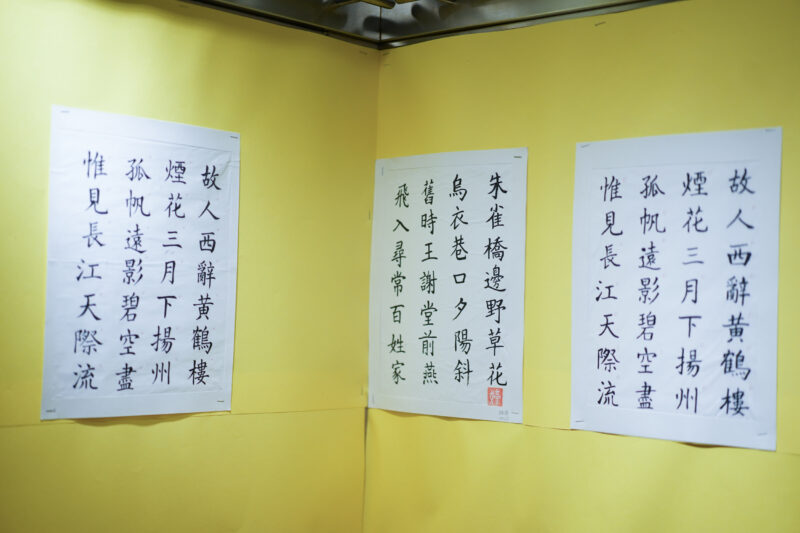 故人西辭黃鶴樓
煙花三月下揚州
孤帆遠影碧空盡
惟見長江天際流
朱雀橋邊野草花
烏衣巷口夕陽斜
舊時王謝堂前燕
飛入尋常百姓家
故人西辭黃鶴樓
煙花三月下揚州
孤帆遠影碧空盡
惟見長江天際流